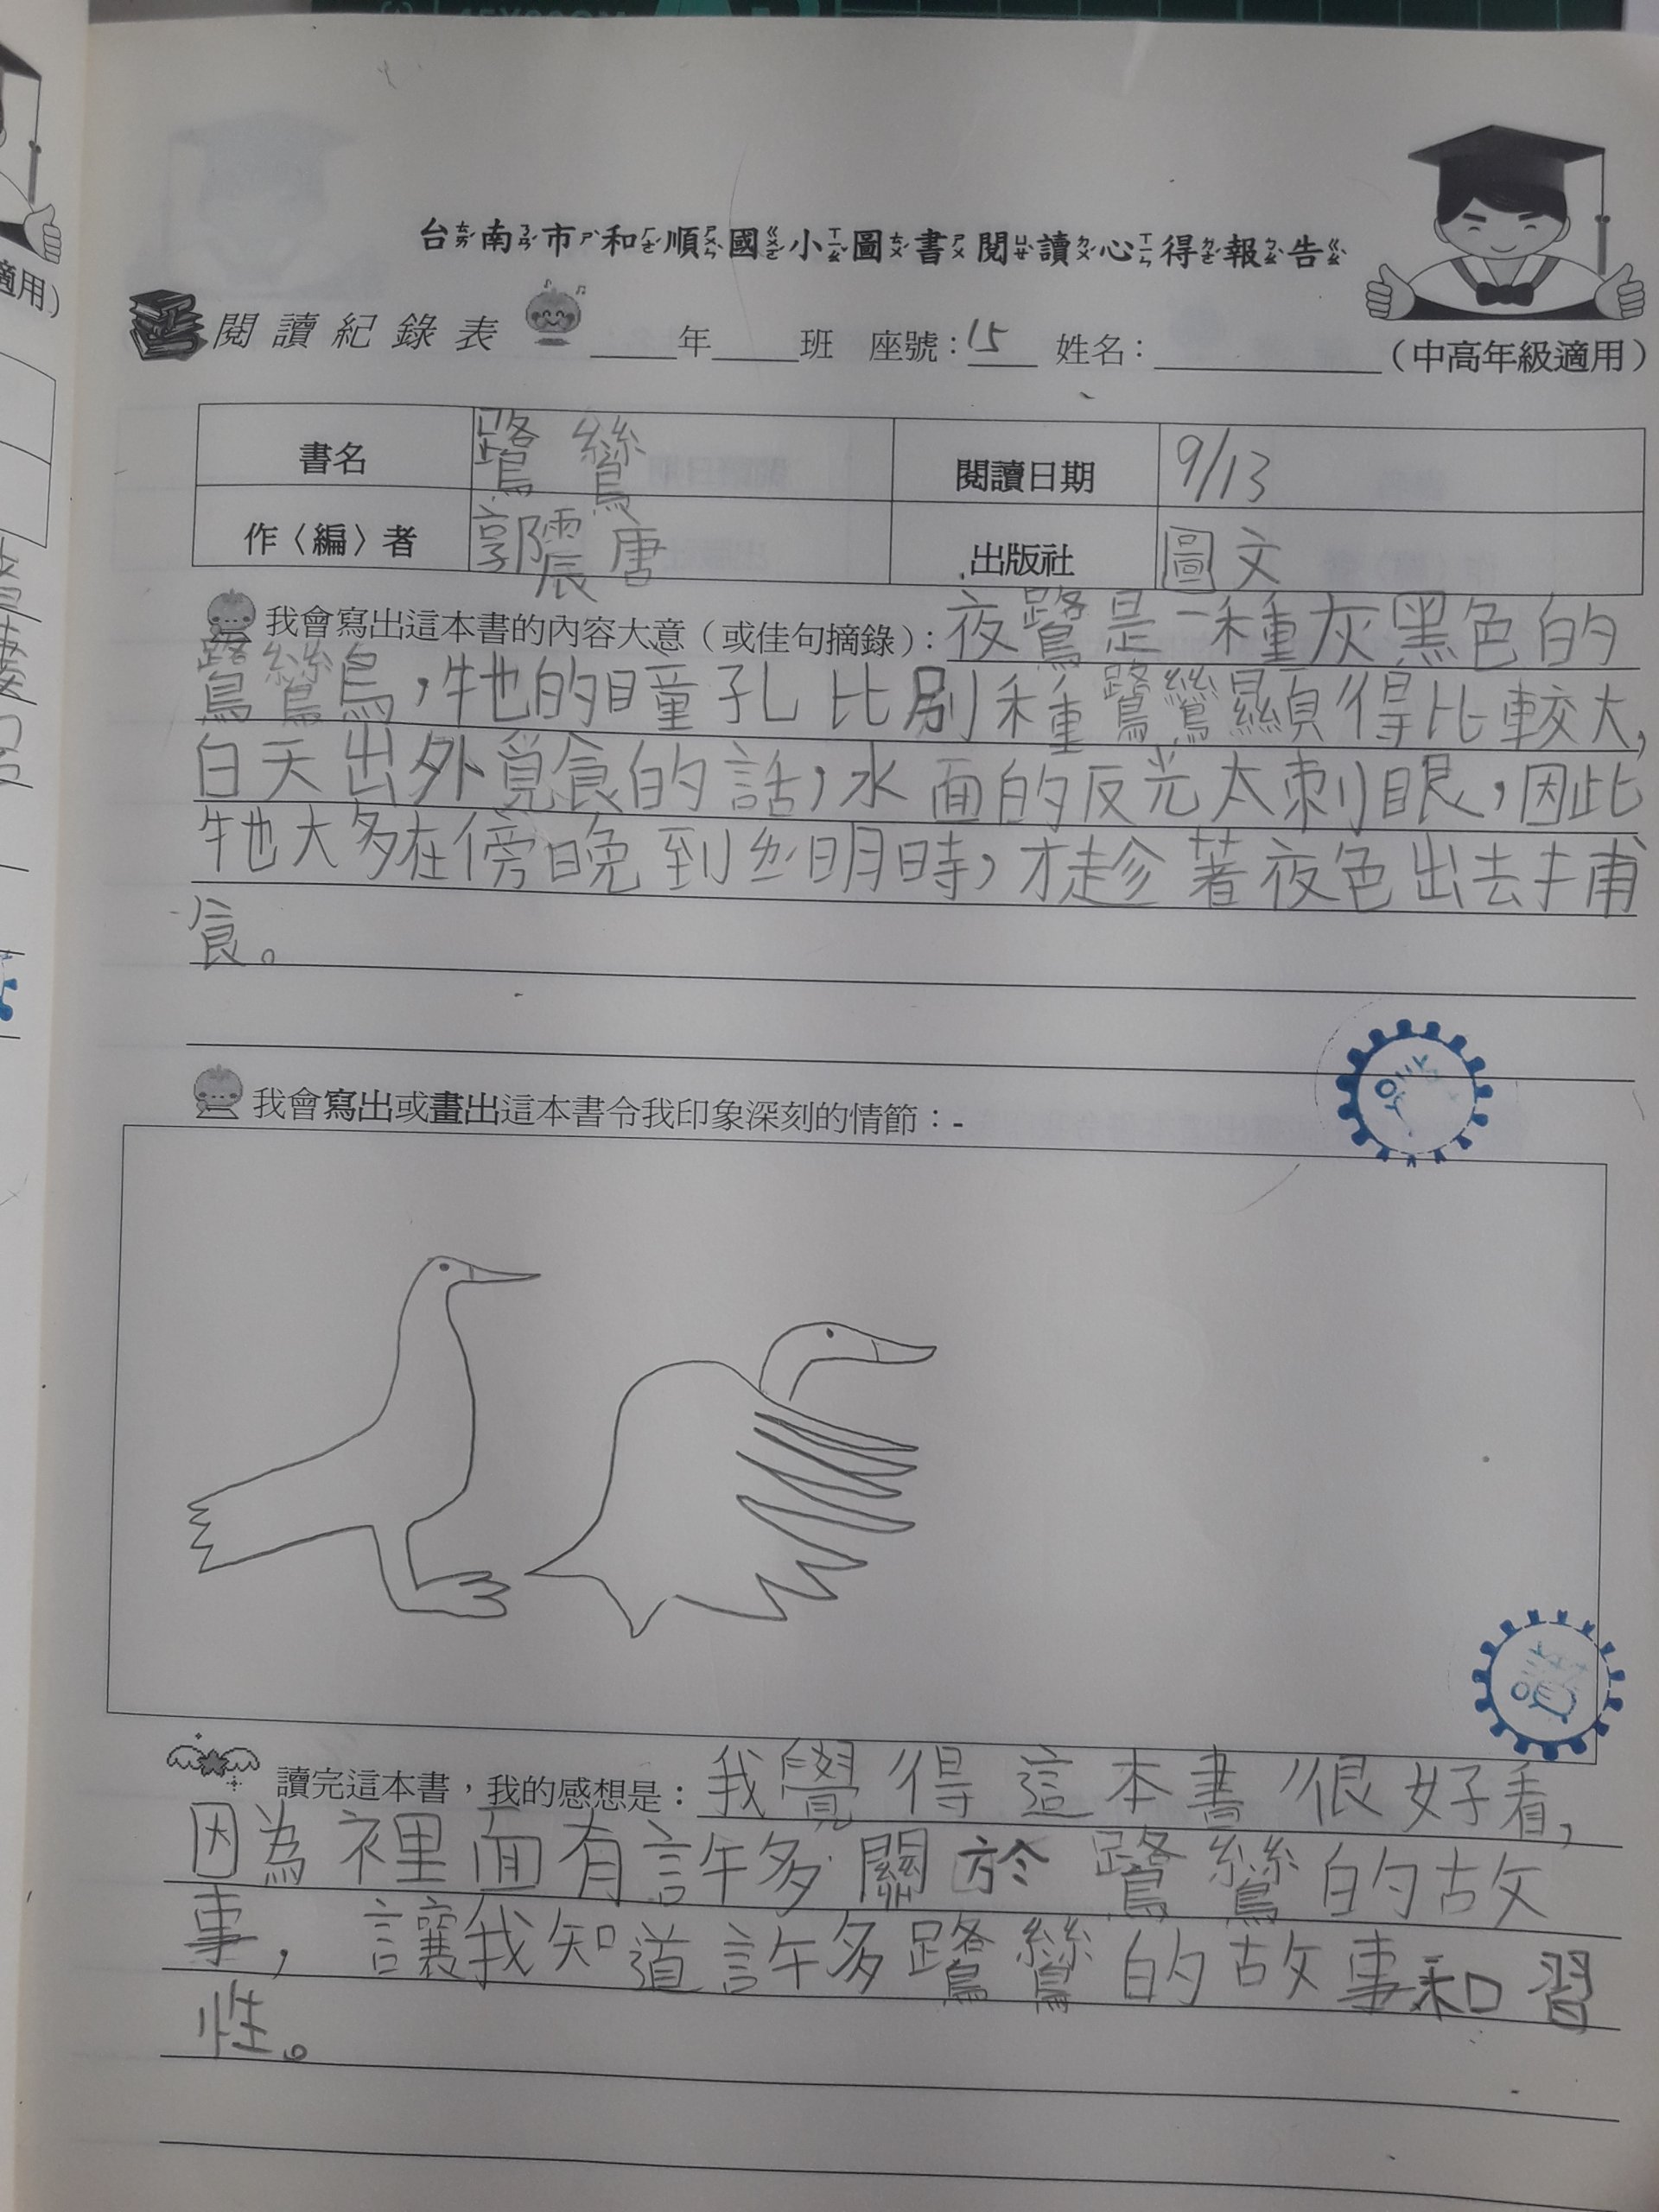 台南市和順國小圖書閱讀心得報告
閱讀紀錄表 ____年____班 座號:15 姓名:________(中高年級適用)
書名 鷺鷥 閱讀日期 9/13
作〈編〉者 郭震唐 出版社 圖文
我會寫出這本書的內容大意(或佳句摘錄):夜鷺是一種灰黑色的
鷺鷥鳥,牠的瞳孔比別種鷺鷥顯得比較大,
白天出外覓食的話,水面的反光太刺眼,因此
牠大多在傍晚到黎明時,才趁著夜色出去捕
食。
我會寫出或畫出這本書令我印象深刻的情節:
讀完這本書,我的感想是:我覺得這本書很好看,
因為裡面有許多關於鷺鷥的故
事,讓我知道許多鷺鷥的故事和習
性。
適用)